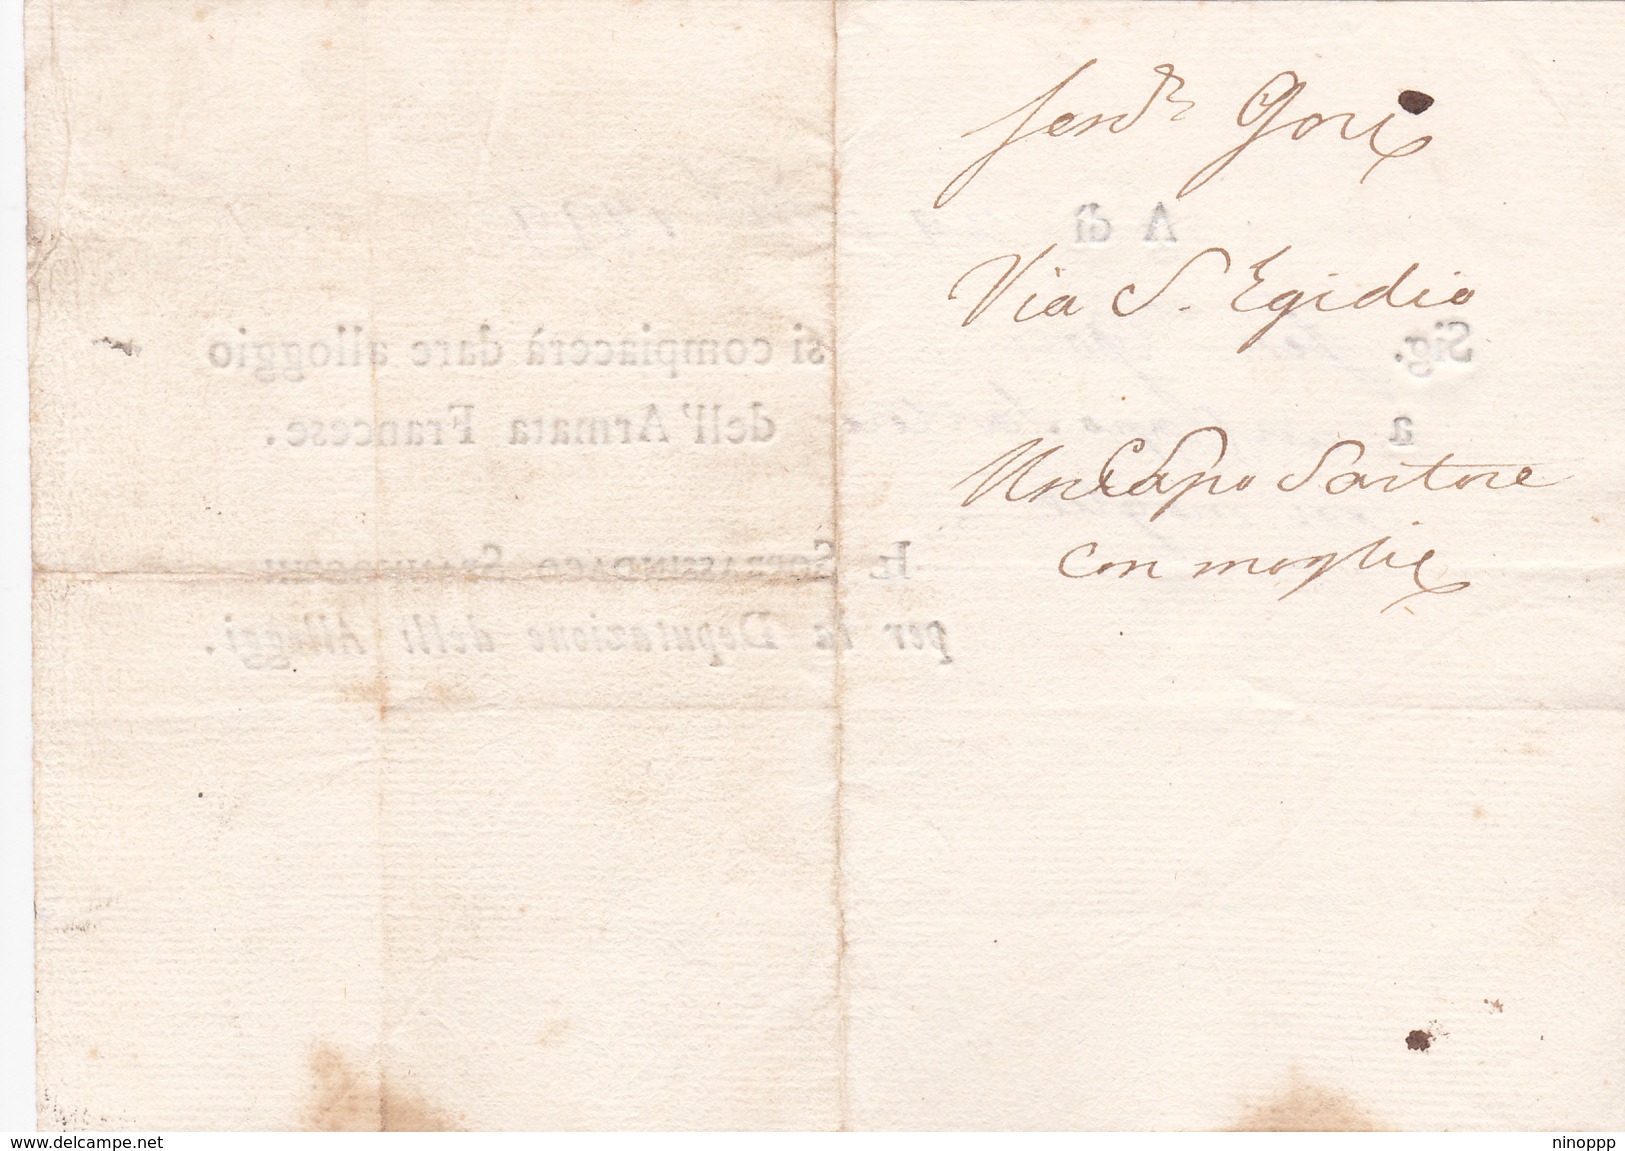 Ferd.º Gori
Via S. Egidio
Un Capo Sartore
con moglie
A dì 1799
Sig. si compiacerà dare alloggio
a dell'Armata Francese.
Il Soprassindaco
per la Deputazione delli Alloggi.
www.delcampe.net
ninoppp